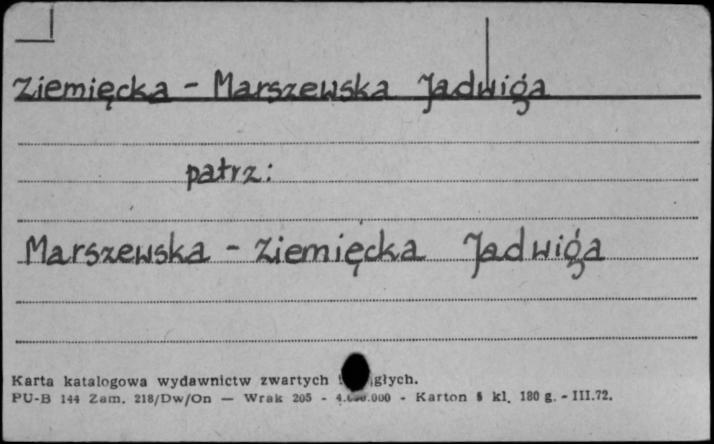 Ziemięcka - Marszewska Jadwiga
patrz:
Marszewska - Ziemięcka Jadwiga
Karta katalogowa wydawnictw zwartych
PU-B 144 Zam. 218/Dw/On — Wrak 205 - - Karton kl. 180 g. - III.72.